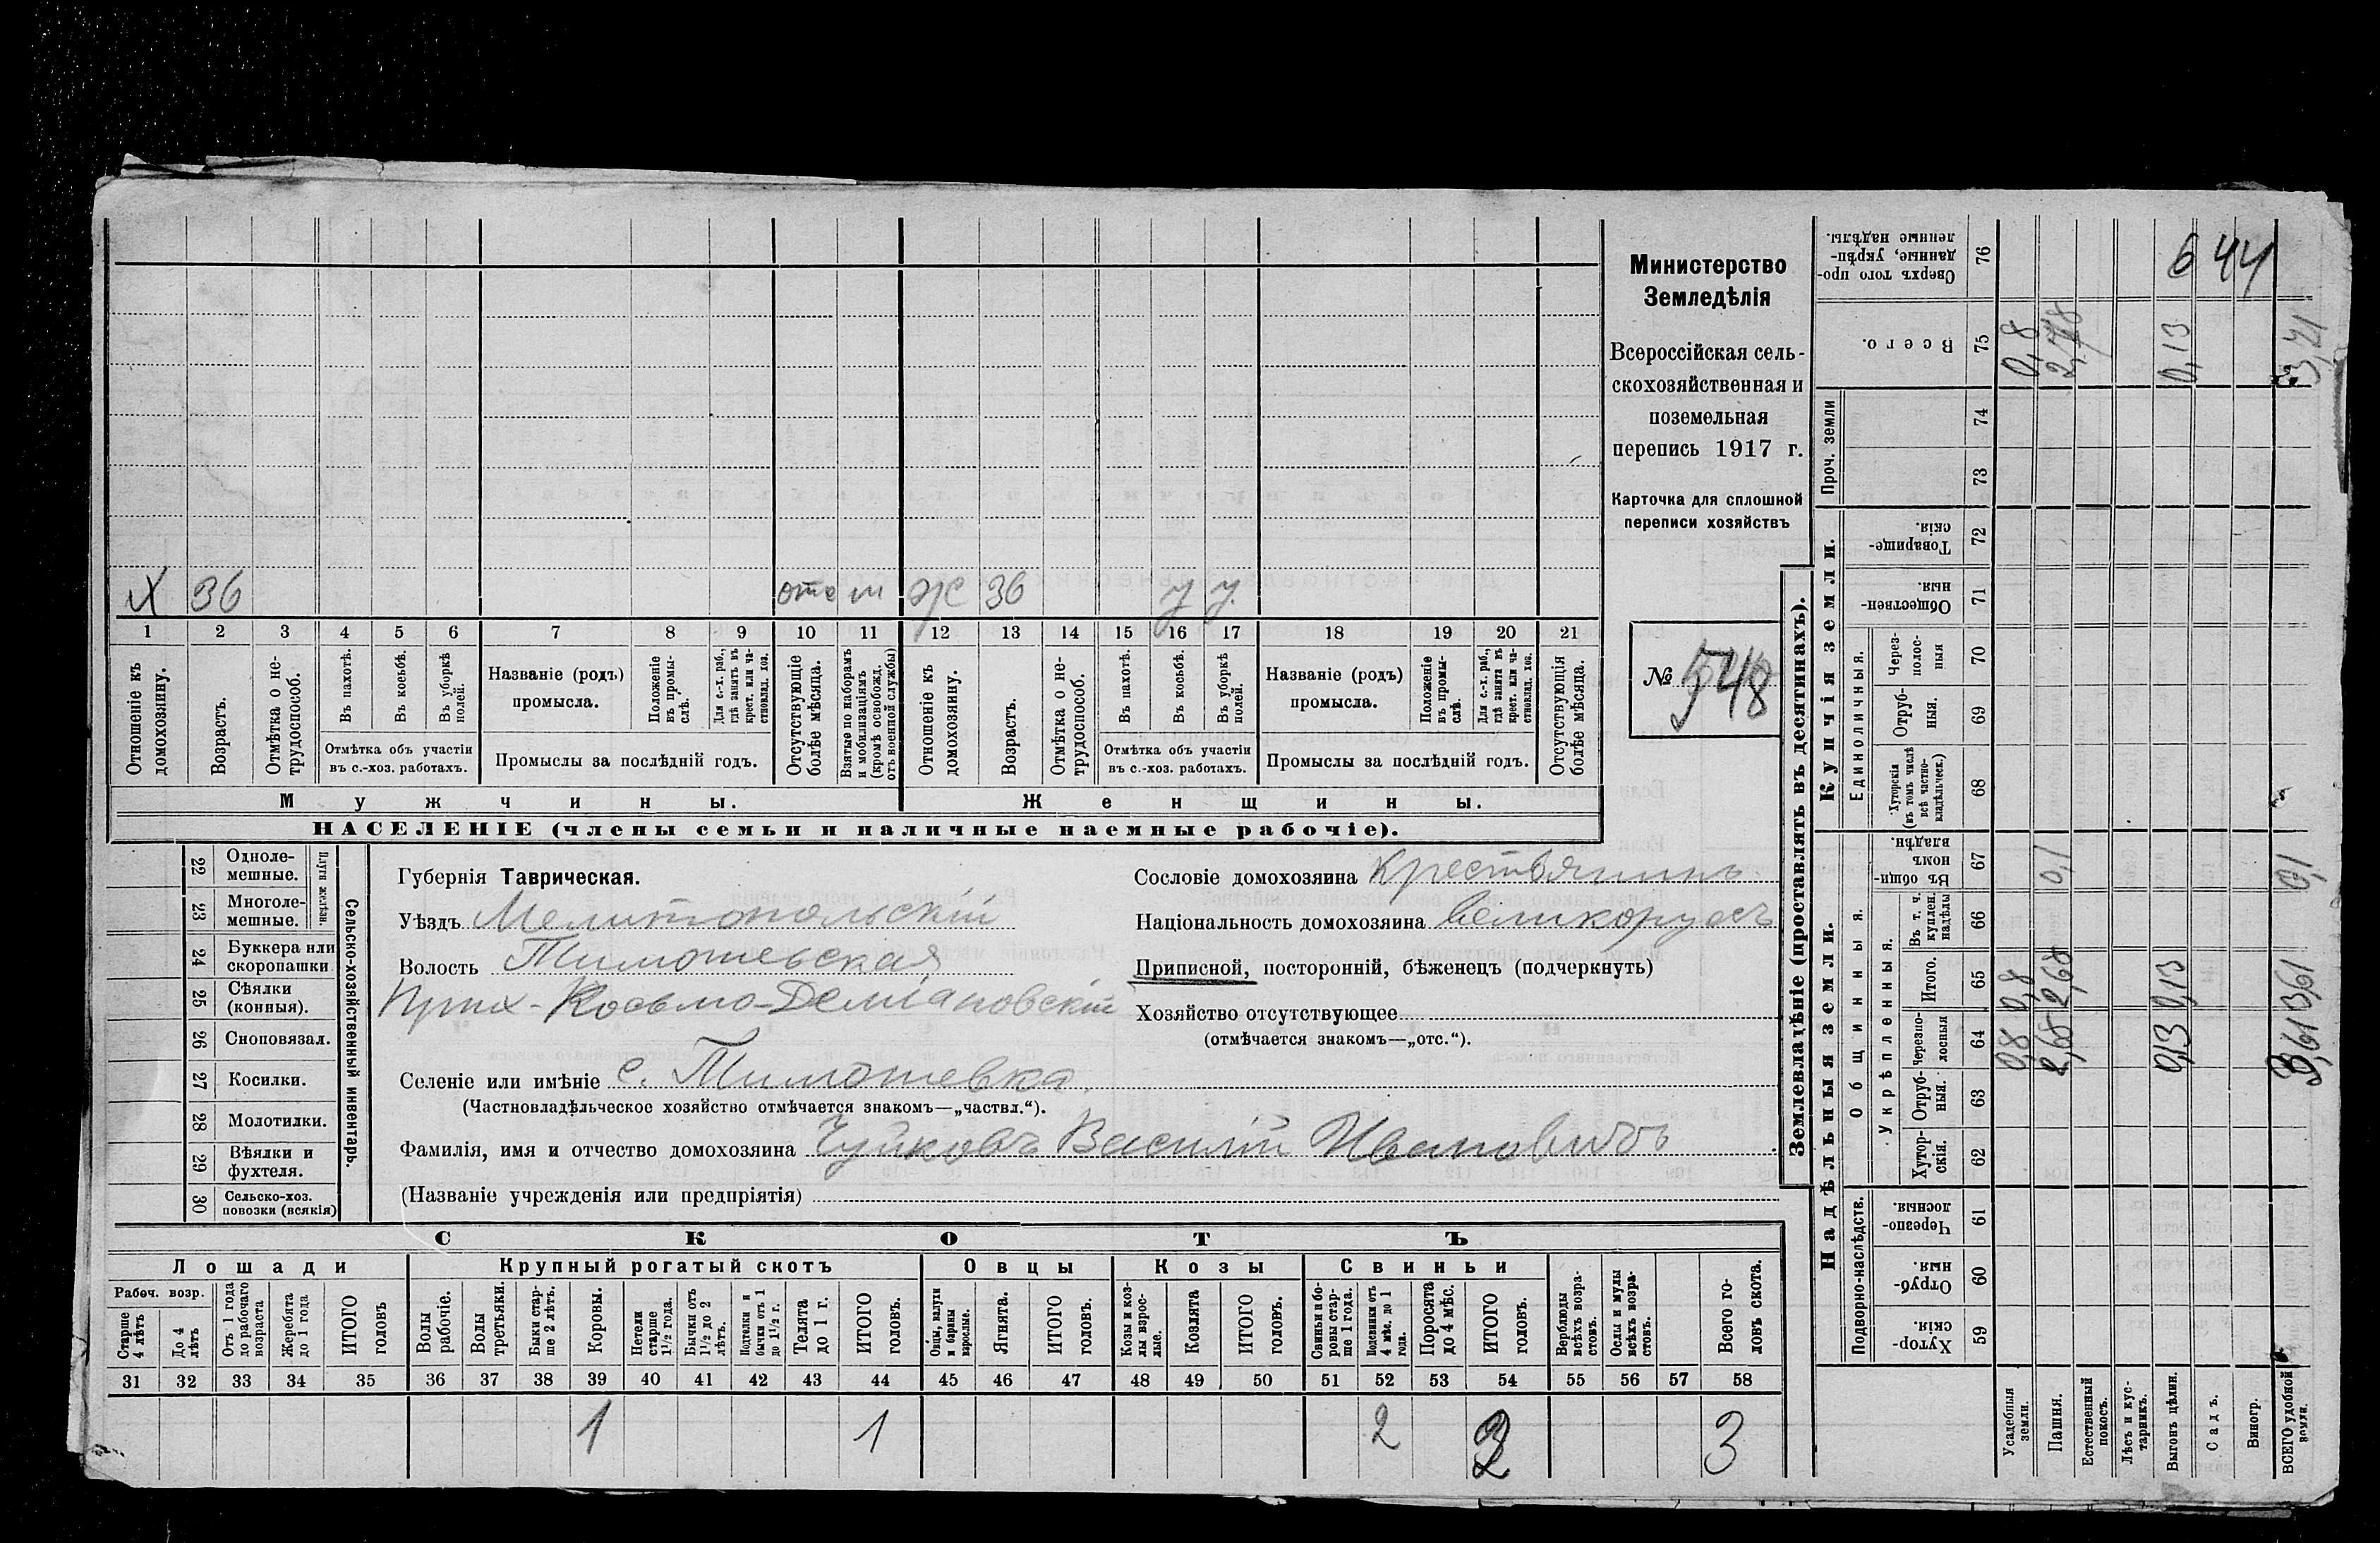 Х 36 отс м Ж 36 У У
1 2 3 4 5 6 7 8 9 10 11 12 13 14 15 16 17 18 19 20 21
Отношеніе къ домохозяину.
Возрастъ.
Отмѣтка о не-трудоспособ.
Въ пахотѣ.
Въ косьбѣ.
Въ уборкѣ полей.
Отмѣтка объ участіи
въ с.-хоз. работахъ.
Названіе (родъ)
промысла.
Положеніе въ промы-слѣ.
Для с.-х. раб., гдѣ занятъ въ крест. или ча-стновлад. хоз.
Промыслы за послѣдній годъ.
Отсутствующіе болѣе мѣсяца.
Взятые по наборамъ и мобилизаціямъ (кромѣ освобожд. отъ военной службы)
Отношеніе къ домохозяину.
Возрастъ.
Отмѣтка о не-трудоспособ.
Въ пахотѣ.
Въ косьбѣ.
Въ уборкѣ полей.
Отмѣтка объ участіи
въ с.-хоз. работахъ.
Названіе (родъ)
промысла.
Положеніе въ промы-слѣ.
Для с.-х. раб., гдѣ занята въ крест. или ча-стновлад. хоз.
Промыслы за послѣдній годъ.
Отсутствующія болѣе мѣсяца.
Мужчины. Женщины.
НАСЕЛЕНІЕ (члены семьи и наличные наемные рабочіе).
Министерство
Земледѣлія
Всероссійская сель-
скохозяйственная и
поземельная
перепись 1917 г.
Карточка для сплошной
переписи хозяйствъ
№ 548
22 Одноле-мешные.
23 Многоле-мешные.
Плуги желѣзн.
24 Буккера или скоропашки
25 Сѣялки (конныя).
26 Сноповязал.
27 Косилки.
28 Молотилки.
29 Вѣялки и фухтеля.
30 Сельско-хоз. повозки (всякія)
Сельско-хозяйственный инвентарь.
Губернія Таврическая.
Уѣздъ Мелитопольскій
Волость Тимошевская
Прих-Косьмо-Деміановскій
Селеніе или имѣніе с. Тимошевка.
(Частновладѣльческое хозяйство отмѣчается знакомъ—„частвл.“).
Фамилія, имя и отчество домохозяина Чуйковъ Василій Ивановичъ
(Названіе учрежденія или предпріятія)
Сословіе домохозяина крестьянинъ
Національность домохозяина великорусъ
Приписной, посторонній, бѣженецъ (подчеркнуть)
Хозяйство отсутствующее
(отмѣчается знакомъ—„отс.“).
СКОТЪ
Лошади Крупный рогатый скотъ Овцы Козы Свиньи
Рабоч. возр.
Старше 4 лѣтъ
До 4 лѣтъ
Отъ 1 года до рабочаго возраста
Жеребята до 1 года
ИТОГО головъ
Волы рабочіе.
Волы третьяки.
Быки стар-ше 2 лѣтъ.
Коровы.
Нетели старше 1½ года.
Бычки отъ 1½ до 2 лѣтъ.
Подтелки и бычки отъ 1 до 1½ г.
Телята до 1 г.
ИТОГО головъ.
Овцы, валухи и бараны взрослые.
Ягнята.
ИТОГО головъ.
Козы и коз-лы взрос-лые.
Козлята
ИТОГО головъ.
Свиньи и бо-ровы стар-ше 1 года.
Подсвинки отъ 4 мѣс. до 1 года.
Поросята до 4 мѣс.
ИТОГО головъ.
Верблюды всѣхъ возра-стовъ.
Ослы и мулы всѣхъ возра-стовъ.
Всего го-ловъ скота.
31 32 33 34 35 36 37 38 39 40 41 42 43 44 45 46 47 48 49 50 51 52 53 54 55 56 57 58
1 1 2 2 3
Землевладѣніе (проставлять въ десятинахъ).
Надѣльныя земли. Купчія земли. Проч. земли
Подворно-наслѣдств.
Общинныя.
Укрѣпленныя.
Единоличныя.
Хутор-скія. 59
Отруб-ныя. 60
Черезпо-лосныя. 61
Хутор-скія. 62
Отруб-ныя. 63
Черезпо-лосныя 64
Итого. 65
Въ т. ч. куплен. надѣлы 66
Въ общин-номъ владѣн. 67
Хуторскія (въ томъ числѣ всѣ частно-владѣльчес.) 68
Отруб-ныя. 69
Через-полос-ныя 70
Обществен-ныя. 71
Товарище-скія. 72
73
74
Всего. 75
Сверхъ того про-данные, укрѣп-ленные надѣлы. 76
Усадебныя земли. 0,8 0,8 0,8
Пашня. 2,68 2,68 0,1 2,78
Естественный покосъ.
Лѣсъ и кус-тарникъ.
Выгонъ цѣлин. 0,13 0,13 0,13
Садъ.
Виногр.
ВСЕГО удобной земли. 3,61 3,61 0,1 3,71
644